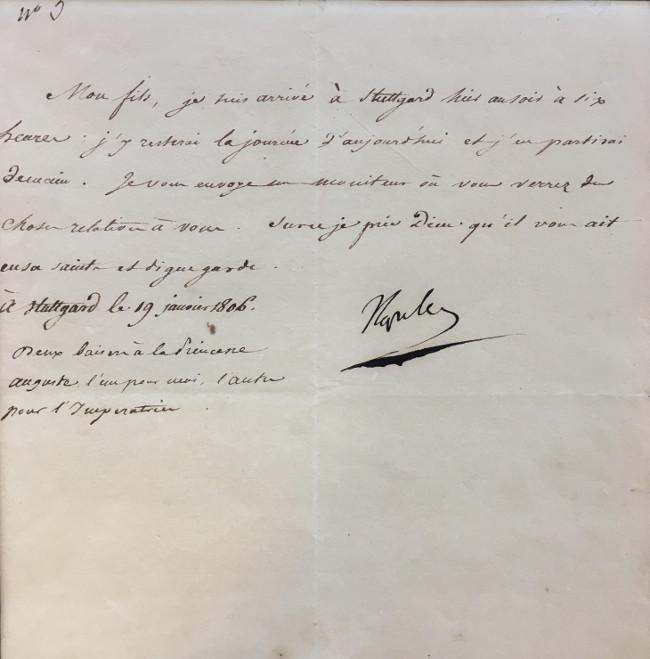 Nº 3
Mon fils, je suis arrivé à Stuttgard hier au soir à six
heures. j'y resterai la journée d'aujourd'hui et j'en partirai
demain. Je vous envoye un moniteur où vous verrez des
choses relatives à vous. Sur ce je prie Dieu qu'il vous ait
en sa sainte et digne garde.
à Stuttgard le 19 janvier 1806.
Napoleon
Deux baisers à la Princesse
auguste, l'un pour moi, l'autre
pour l'Imperatrice